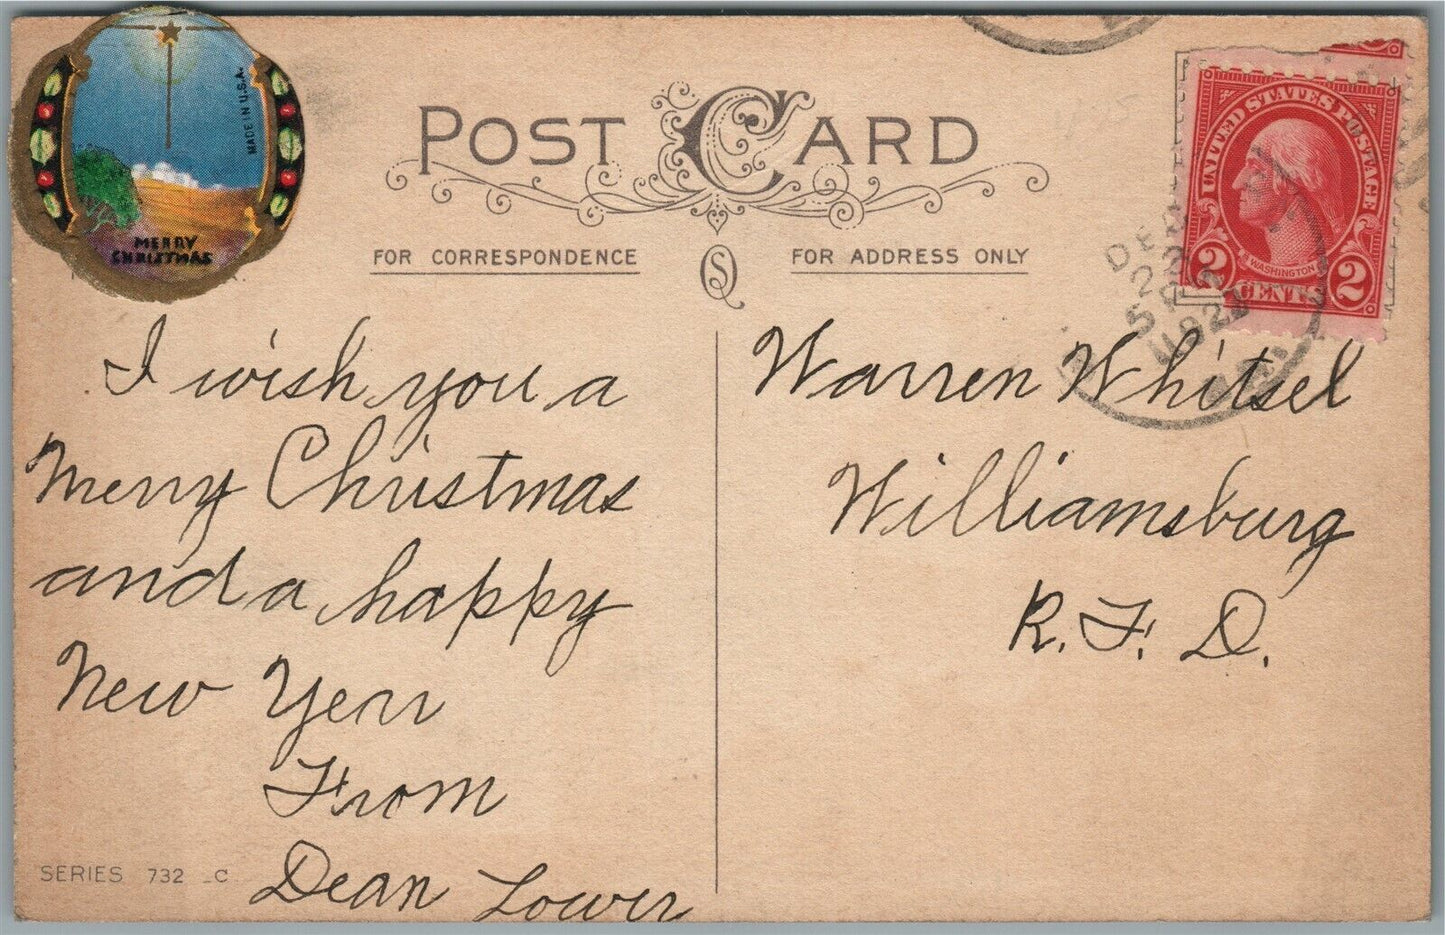 MADE IN U.S.A.
MERRY
CHRISTMAS
POST CARD
FOR CORRESPONDENCE
FOR ADDRESS ONLY
UNITED STATES POSTAGE
WASHINGTON
2 CENTS 2
DEC
22
I wish you a
Merry Christmas
and a happy
New Year
From
Dean Lower
Warren Whitsel
Williamsburg
R.F.D.
SERIES 732 C